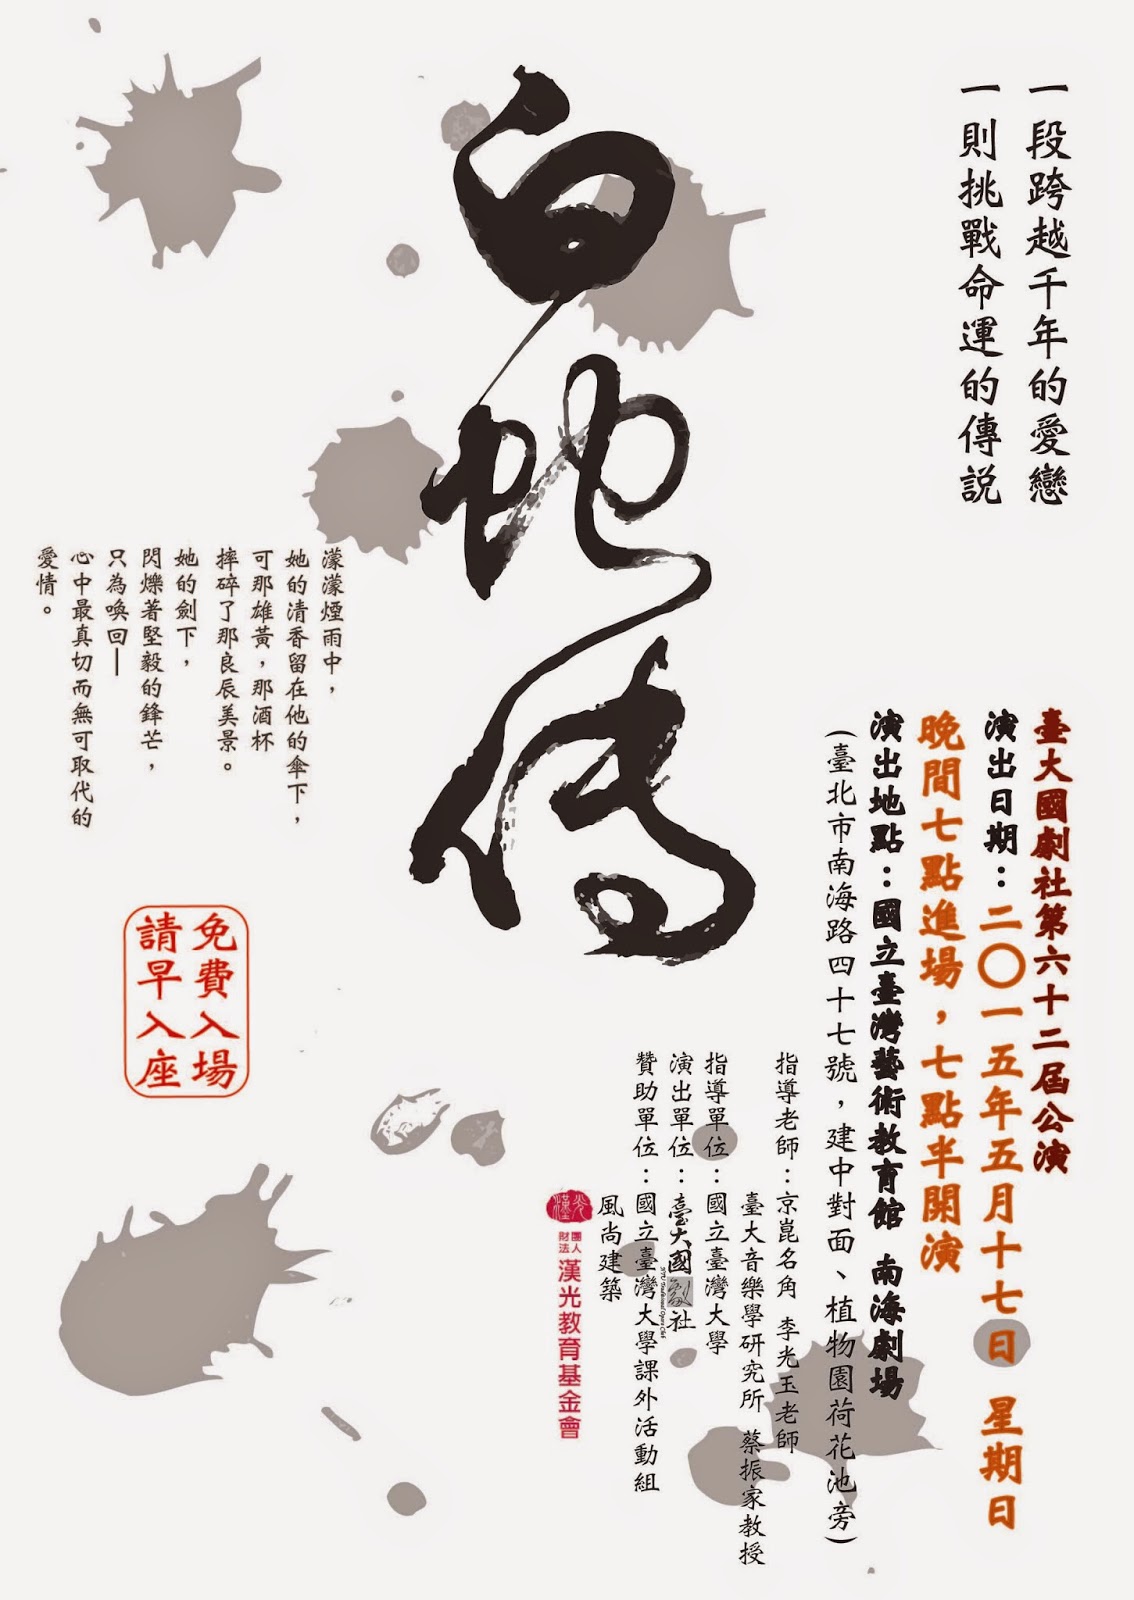 一段跨越千年的愛戀
一則挑戰命運的傳說
白蛇傳
濛濛煙雨中，
她的清香留在他的傘下，
可那雄黃，那酒杯
摔碎了那良辰美景。
她的劍下，
閃爍著堅毅的鋒芒，
只為喚回—
心中最真切而無可取代的
愛情。
臺大國劇社第六十二屆公演
演出日期：二〇一五年五月十七日 星期日
晚間七點進場，七點半開演
演出地點：國立臺灣藝術教育館 南海劇場
(臺北市南海路四十七號，建中對面、植物園荷花池旁)
指導老師：京崑名角 李光玉老師
臺大音樂學研究所 蔡振家教授
指導單位：國立臺灣大學
演出單位：臺大國劇社
NTU Traditional Opera Club
贊助單位：國立臺灣大學課外活動組
風尚建築
漢光
財團法人 漢光教育基金會
免費入場
請早入座